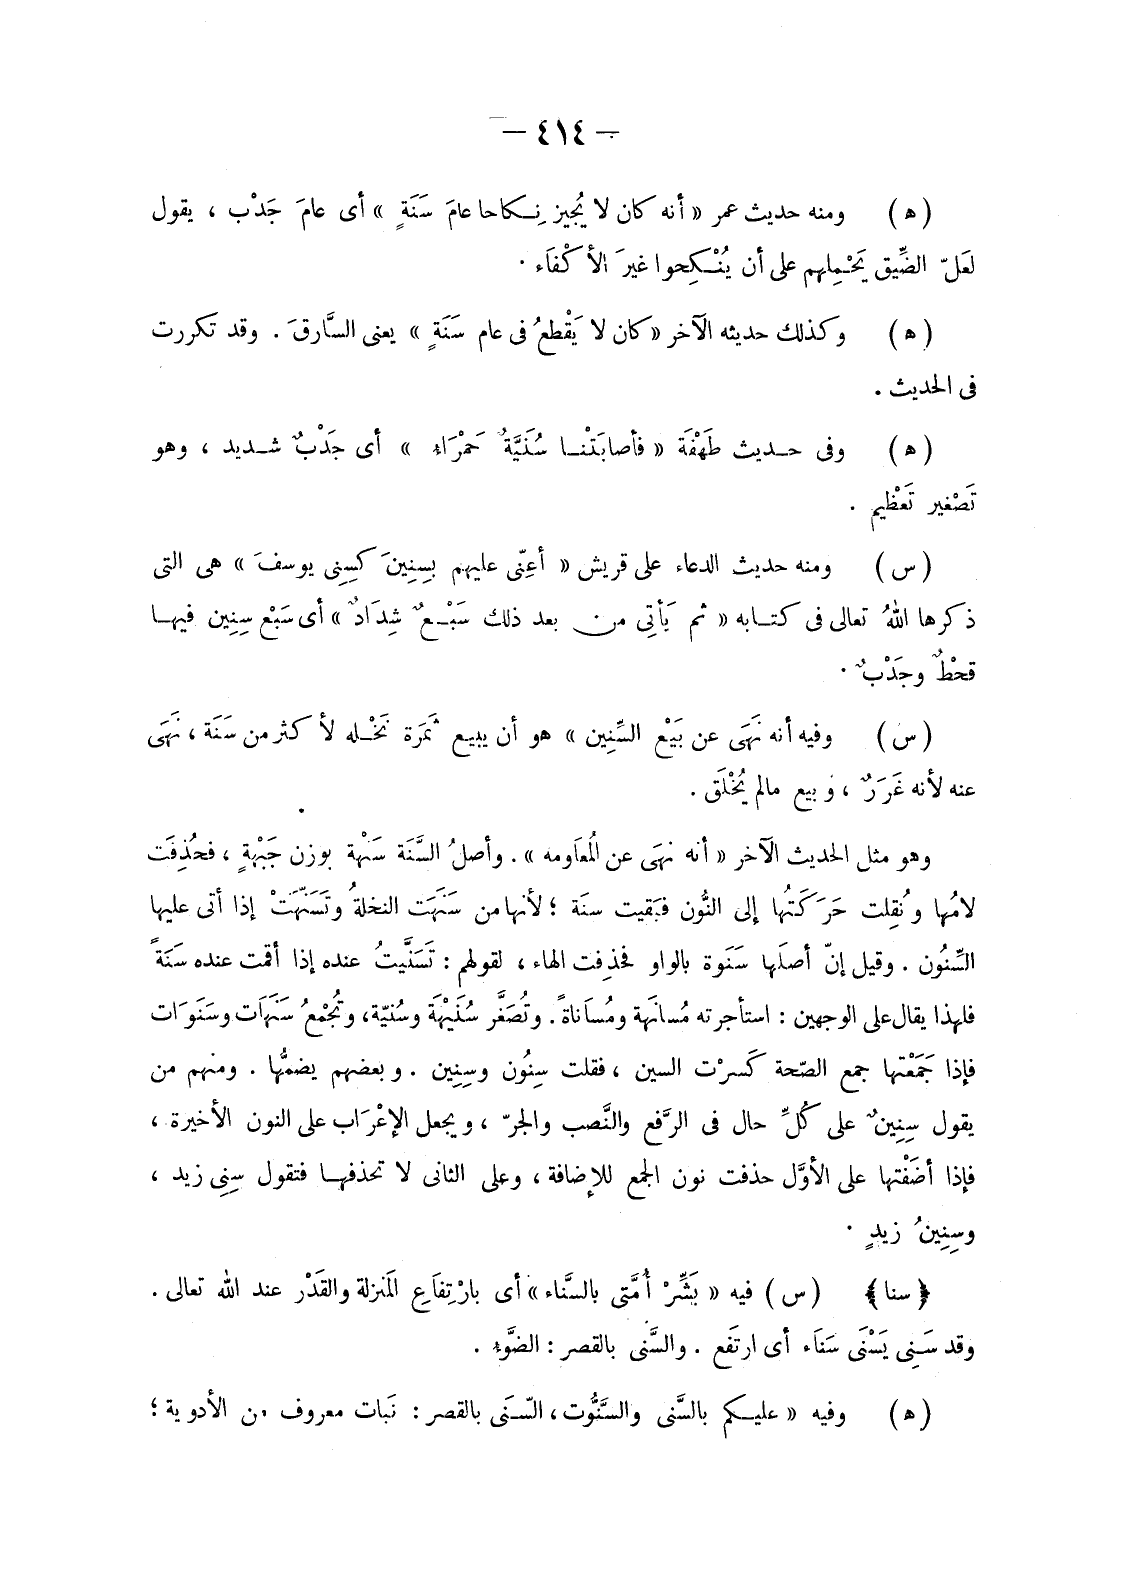 — ٤١٤ —
(ه) ومنه حديث عمر « أنه كان لا يُجيز نِكاحا عامَ سَنَةٍ » أى عامَ جَدْب ، يقول
لعَلّ الضِّيق يَحْمِلهم على أن يُنْكِحوا غيرَ الأكْفَاء .
(ه) وكذلك حديثه الآخر « كان لا يَقْطعُ فى عام سَنَةٍ » يعنى السَّارقَ . وقد تكررت
فى الحديث .
(ه) وفى حديث طَهْفَة « فأصابَتْنا سُنَيَّةٌ حَمْرَاء » أى جَدْبٌ شديد ، وهو
تَصْغير تَعْظِيم .
(س) ومنه حديث الدعاء على قريش « أعِنّى عليهم بسِنِينَ كَسِنِى يوسفَ » هى التى
ذكرها اللهُ تعالى فى كتابه « ثم يَأتِى من بعد ذلك سَبْعٌ شِدَادٌ » أى سَبْع سِنِين فيها
قحْطٌ وجَدْبٌ .
(س) وفيه أنه نَهَى عن بَيْع السِّنِين » هو أن يبيع ثَمرَة نَخْله لأكثر من سَنَة ، نَهَى
عنه لأنه غَرَرٌ ، وبيع مالم يُخْلَق .
وهو مثل الحديث الآخر « أنه نهَى عن المُعَاومه » . وأصلُ السَّنَة سَنْهة بوزن جَبْهةٍ ، فحُذِفَت
لامُها ونُقِلت حَرَكَتُها إلى النُّون فبَقيت سنة ؛ لأنها من سَنَهَت النخلةُ وتَسَنَّهَتْ إذا أتى عليها
السِّنُون . وقيل إنّ أصلَها سَنَوة بالواو فحذِفت الهاء ، لقولهم : تَسَنَّيتُ عنده إذا أقمت عنده سَنَةً
فلهذا يقال على الوجهين : استأجرته مُسانَهة ومُسَاناةً . وتُصَغَّر سُنَيْهَة وسُنيّة ، وتُجْمعُ سَنَهَات وسَنَوَات
فإذا جَمَعْتها جمع الصّحة كَسرْت السين ، فقلت سِنُون وسِنِين . وبعضهم يضمُّها . ومنهم من
يقول سِنِينٌ على كُلِّ حال فى الرَّفع والنَّصب والجرّ ، ويجعل الإعْرَاب على النون الأخيرة ،
فإذا أضَفْتها على الأوَّل حذفت نون الجمع للإضافة ، وعلى الثانى لا تحذفها فتقول سِنِى زيد ،
وسِنِينُ زيدٍ .
﴿ سنا ﴾ (س) فيه « بَشِّرْ أُمَّتى بالسَّناء » أى بارْتِفَاعِ المَنزلة والقَدْر عند الله تعالى .
وقد سَنِى يَسْنَى سَنَاء أى ارتَفع . والسَّنى بالقصر : الضَّوء .
(ه) وفيه « عليكم بالسَّنى والسَّنُّوت ، السّنَى بالقصر : نَبات معروف من الأدوية ؛